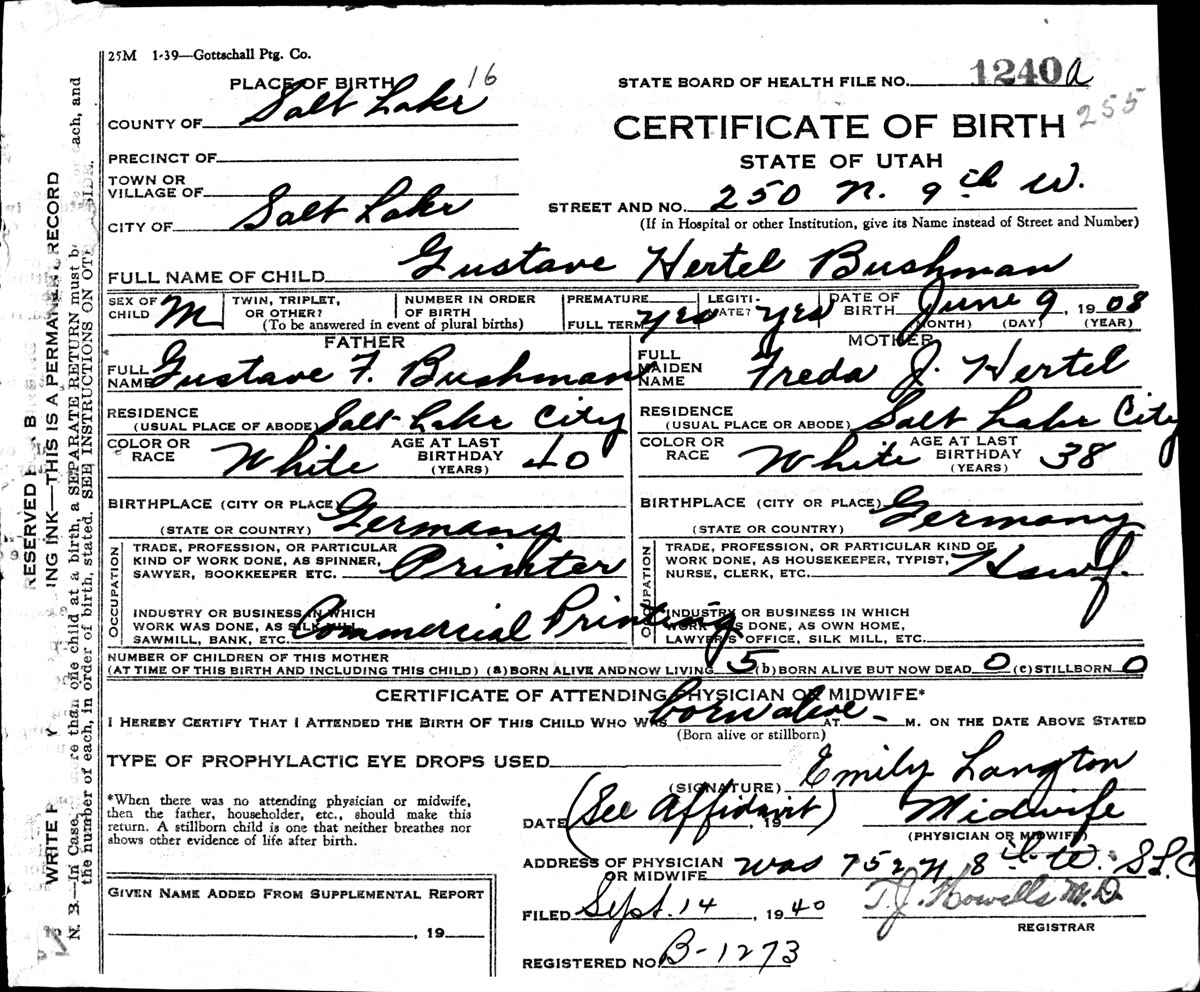 25M 1-39—Gottschall Ptg. Co.
PLACE OF BIRTH 16
STATE BOARD OF HEALTH FILE NO. 1240 a
255
COUNTY OF Salt Lake
CERTIFICATE OF BIRTH
STATE OF UTAH
PRECINCT OF
TOWN OR
VILLAGE OF
STREET AND NO. 250 N. 9th W.
(If in Hospital or other Institution, give its Name instead of Street and Number)
CITY OF Salt Lake
FULL NAME OF CHILD Gustave Hertel Bushman
SEX OF CHILD M
TWIN, TRIPLET, OR OTHER?
NUMBER IN ORDER OF BIRTH
(To be answered in event of plural births)
PREMATURE
FULL TERM yes
LEGITI-MATE? yes
DATE OF BIRTH June 9, 1908
(MONTH) (DAY) (YEAR)
FATHER
FULL NAME Gustave F. Bushman
MOTHER
FULL MAIDEN NAME Freda J. Hertel
RESIDENCE
(USUAL PLACE OF ABODE) Salt Lake City
RESIDENCE
(USUAL PLACE OR ABODE) Salt Lake City
COLOR OR RACE White
AGE AT LAST BIRTHDAY (YEARS) 40
COLOR OR RACE White
AGE AT LAST BIRTHDAY (YEARS) 38
BIRTHPLACE (CITY OR PLACE)
(STATE OR COUNTRY) Germany
BIRTHPLACE (CITY OR PLACE)
(STATE OR COUNTRY) Germany
OCCUPATION
TRADE, PROFESSION, OR PARTICULAR
KIND OF WORK DONE, AS SPINNER,
SAWYER, BOOKKEEPER ETC. Printer
INDUSTRY OR BUSINESS IN WHICH
WORK WAS DONE, AS SILK MILL,
SAWMILL, BANK, ETC. Commercial Printing
OCCUPATION
TRADE, PROFESSION, OR PARTICULAR KIND OF
WORK DONE, AS HOUSEKEEPER, TYPIST,
NURSE, CLERK, ETC. Hswf.
INDUSTRY OR BUSINESS IN WHICH
WORK WAS DONE, AS OWN HOME,
LAWYER'S OFFICE, SILK MILL, ETC.
NUMBER OF CHILDREN OF THIS MOTHER
(AT TIME OF THIS BIRTH AND INCLUDING THIS CHILD) (a) BORN ALIVE AND NOW LIVING 5 (b) BORN ALIVE BUT NOW DEAD 0 (c) STILLBORN 0
CERTIFICATE OF ATTENDING PHYSICIAN OR MIDWIFE*
I HEREBY CERTIFY THAT I ATTENDED THE BIRTH OF THIS CHILD WHO WAS born alive AT M. ON THE DATE ABOVE STATED
(Born alive or stillborn)
TYPE OF PROPHYLACTIC EYE DROPS USED
(SIGNATURE) Emily Langton
*When there was no attending physician or midwife,
then the father, householder, etc., should make this
return. A stillborn child is one that neither breathes nor
shows other evidence of life after birth.
DATE (See Affidavit), 19
Midwife
(PHYSICIAN OR MIDWIFE)
ADDRESS OF PHYSICIAN
OR MIDWIFE was 752 N 8th W. SLC
GIVEN NAME ADDED FROM SUPPLEMENTAL REPORT
, 19
FILED Sept. 14, 1940
T. J. Howells M.D.
REGISTRAR
REGISTERED NO. B-1273
RESERVED
ING INK—THIS IS A PERMANENT RECORD
WRITE
N. B.—In Case more than one child at a birth, a SEPARATE RETURN must be each, and
the number of each, in order of birth, stated. SEE INSTRUCTIONS ON SIDE.